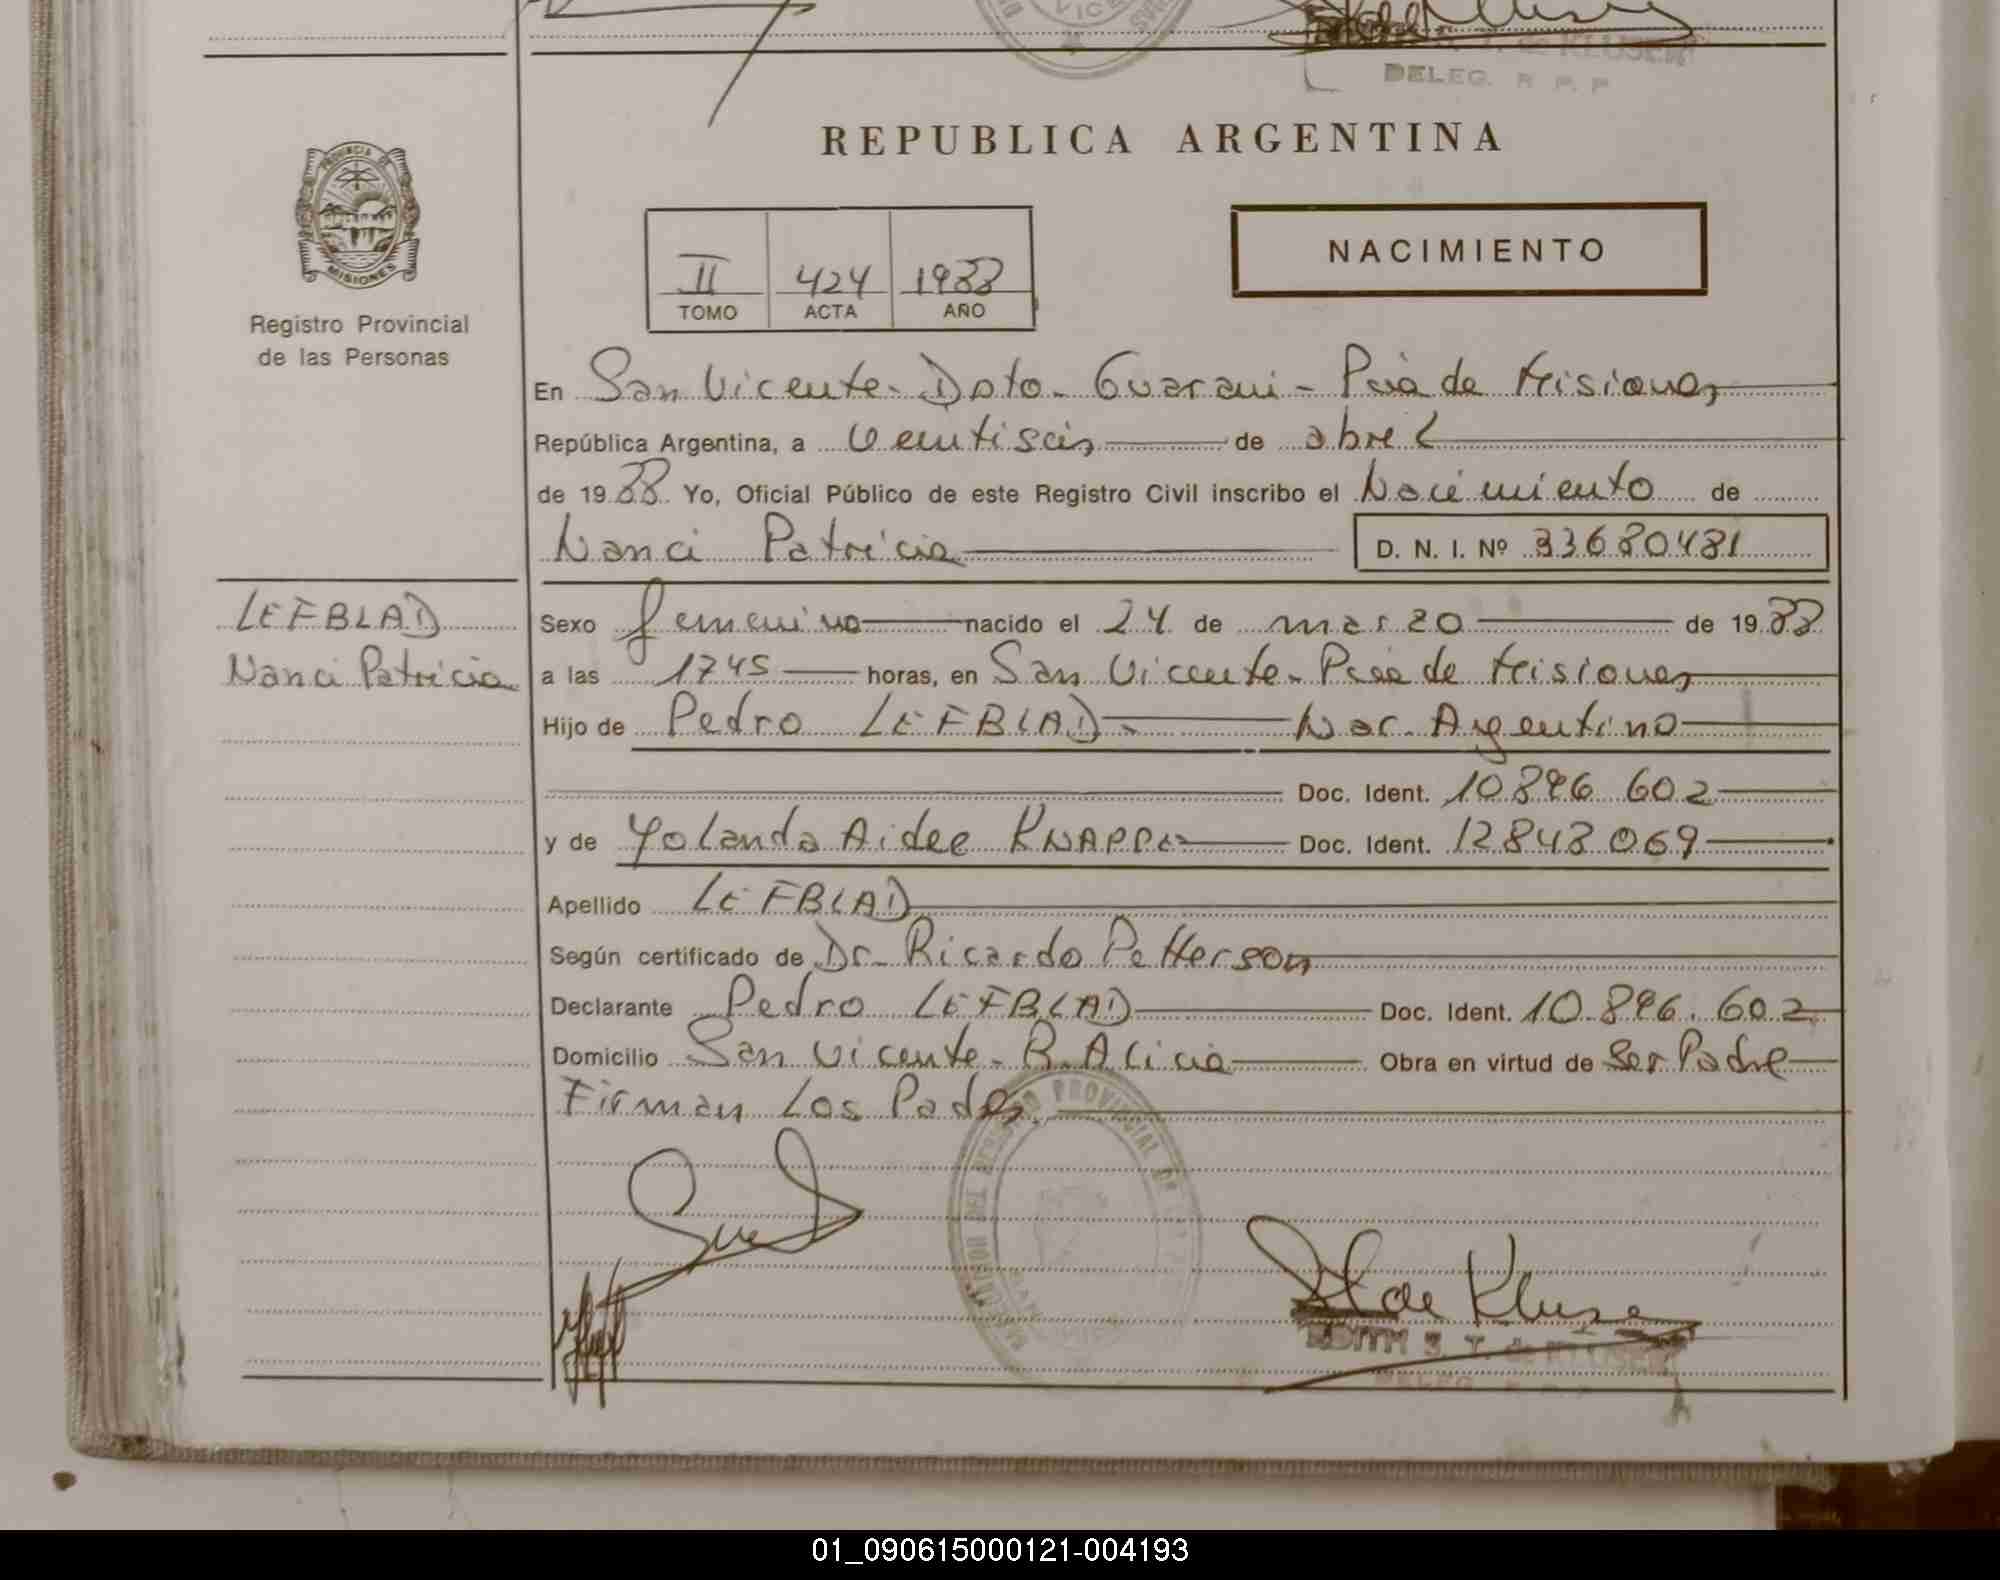 DELEG. R. P. P.
REPUBLICA ARGENTINA
PROVINCIA DE
MISIONES
Registro Provincial
de las Personas
II 424 1988
TOMO ACTA AÑO
NACIMIENTO
En San Vicente - Dpto. Guarani - Pcia de Misiones
República Argentina, a Veintiseis de abril
de 1988 Yo, Oficial Público de este Registro Civil inscribo el Nacimiento de
Nanci Patricia D. N. I. Nº 33680481
LEFBLAD
Nanci Patricia
Sexo femenino nacido el 24 de marzo de 1988
a las 1745 horas, en San Vicente - Pcia de Misiones
Hijo de Pedro LEFBLAD - Nac. Argentino
Doc. Ident. 10896 602
y de Yolanda Aidee Doc. Ident. 12843 069
Apellido LEFBLAD
Según certificado de Dr. Ricardo Petterson
Declarante Pedro LEFBLAD Doc. Ident. 10.896.602
Domicilio San Vicente - B. Alicia Obra en virtud de Ser Padre
Firman Los Padres.
EDITH S. T. de KLUSER
DELEG. R. P. P.
01_090615000121-004193